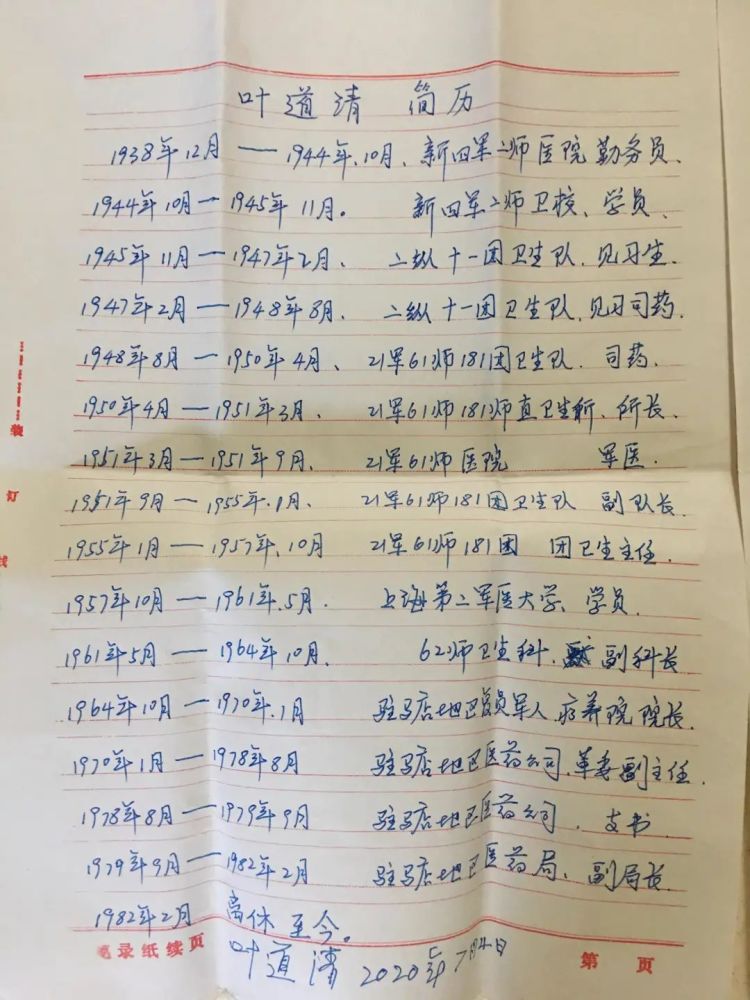 叶道清 简历
1938年12月 — 1944年.10月、新四军二师医院 勤务员.
1944年10月 — 1945年 11月。 新四军二师卫校、学员.
1945年 11月 — 1947年2月、 二纵十一团卫生队. 见习生.
1947年2月 — 1948年8月. 二纵十一团卫生队. 见习司药.
1948年8月 — 1950年4月、 21军61师181团卫生队. 司药.
1950年4月 — 1951年3月. 21军61师181师直卫生所. 所长.
1951年3月 — 1951年9月、 21军61师医院 军医.
1951年9月 — 1955年.1月. 21军61师181团卫生队 副队长.
1955年1月 — 1957年.10月 21军61师181团 团卫生主任.
1957年10月 — 1961年.5月. 上海第二军医大学、学员.
1961年5月 — 1964年10月. 62师卫生科. 副科长
1964年10月 — 1970年.1月 驻马店地区复员军人.疗养院院长.
1970年1月 — 1978年8月 驻马店地区医药公司.革委副主任.
1978年8月 — 1979年9月 驻马店地区医药公司. 支书.
1979年9月 — 1982年2月 驻马店地区医药局、副局长.
1982年2月 离休至今。
叶道清 2020年7月4日
记录纸续页
第 页
装
订
线